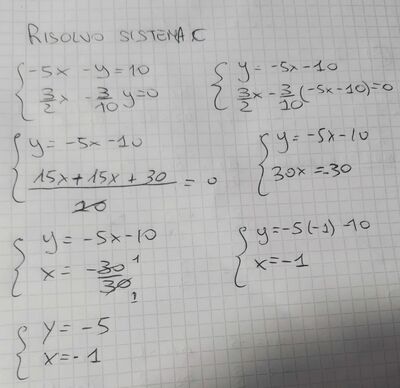 RISOLVO SISTEMA C
{ -5x - y = 10
{ 3/2 x - 3/10 y = 0
{ y = -5x - 10
{ 3/2 x - 3/10 (-5x - 10) = 0
{ y = -5x - 10
{ (15x + 15x + 30)/10 = 0
{ y = -5x - 10
{ 30x = -30
{ y = -5x - 10
{ x = -30/30 1 1
{ y = -5(-1) - 10
{ x = -1
{ y = -5
{ x = -1